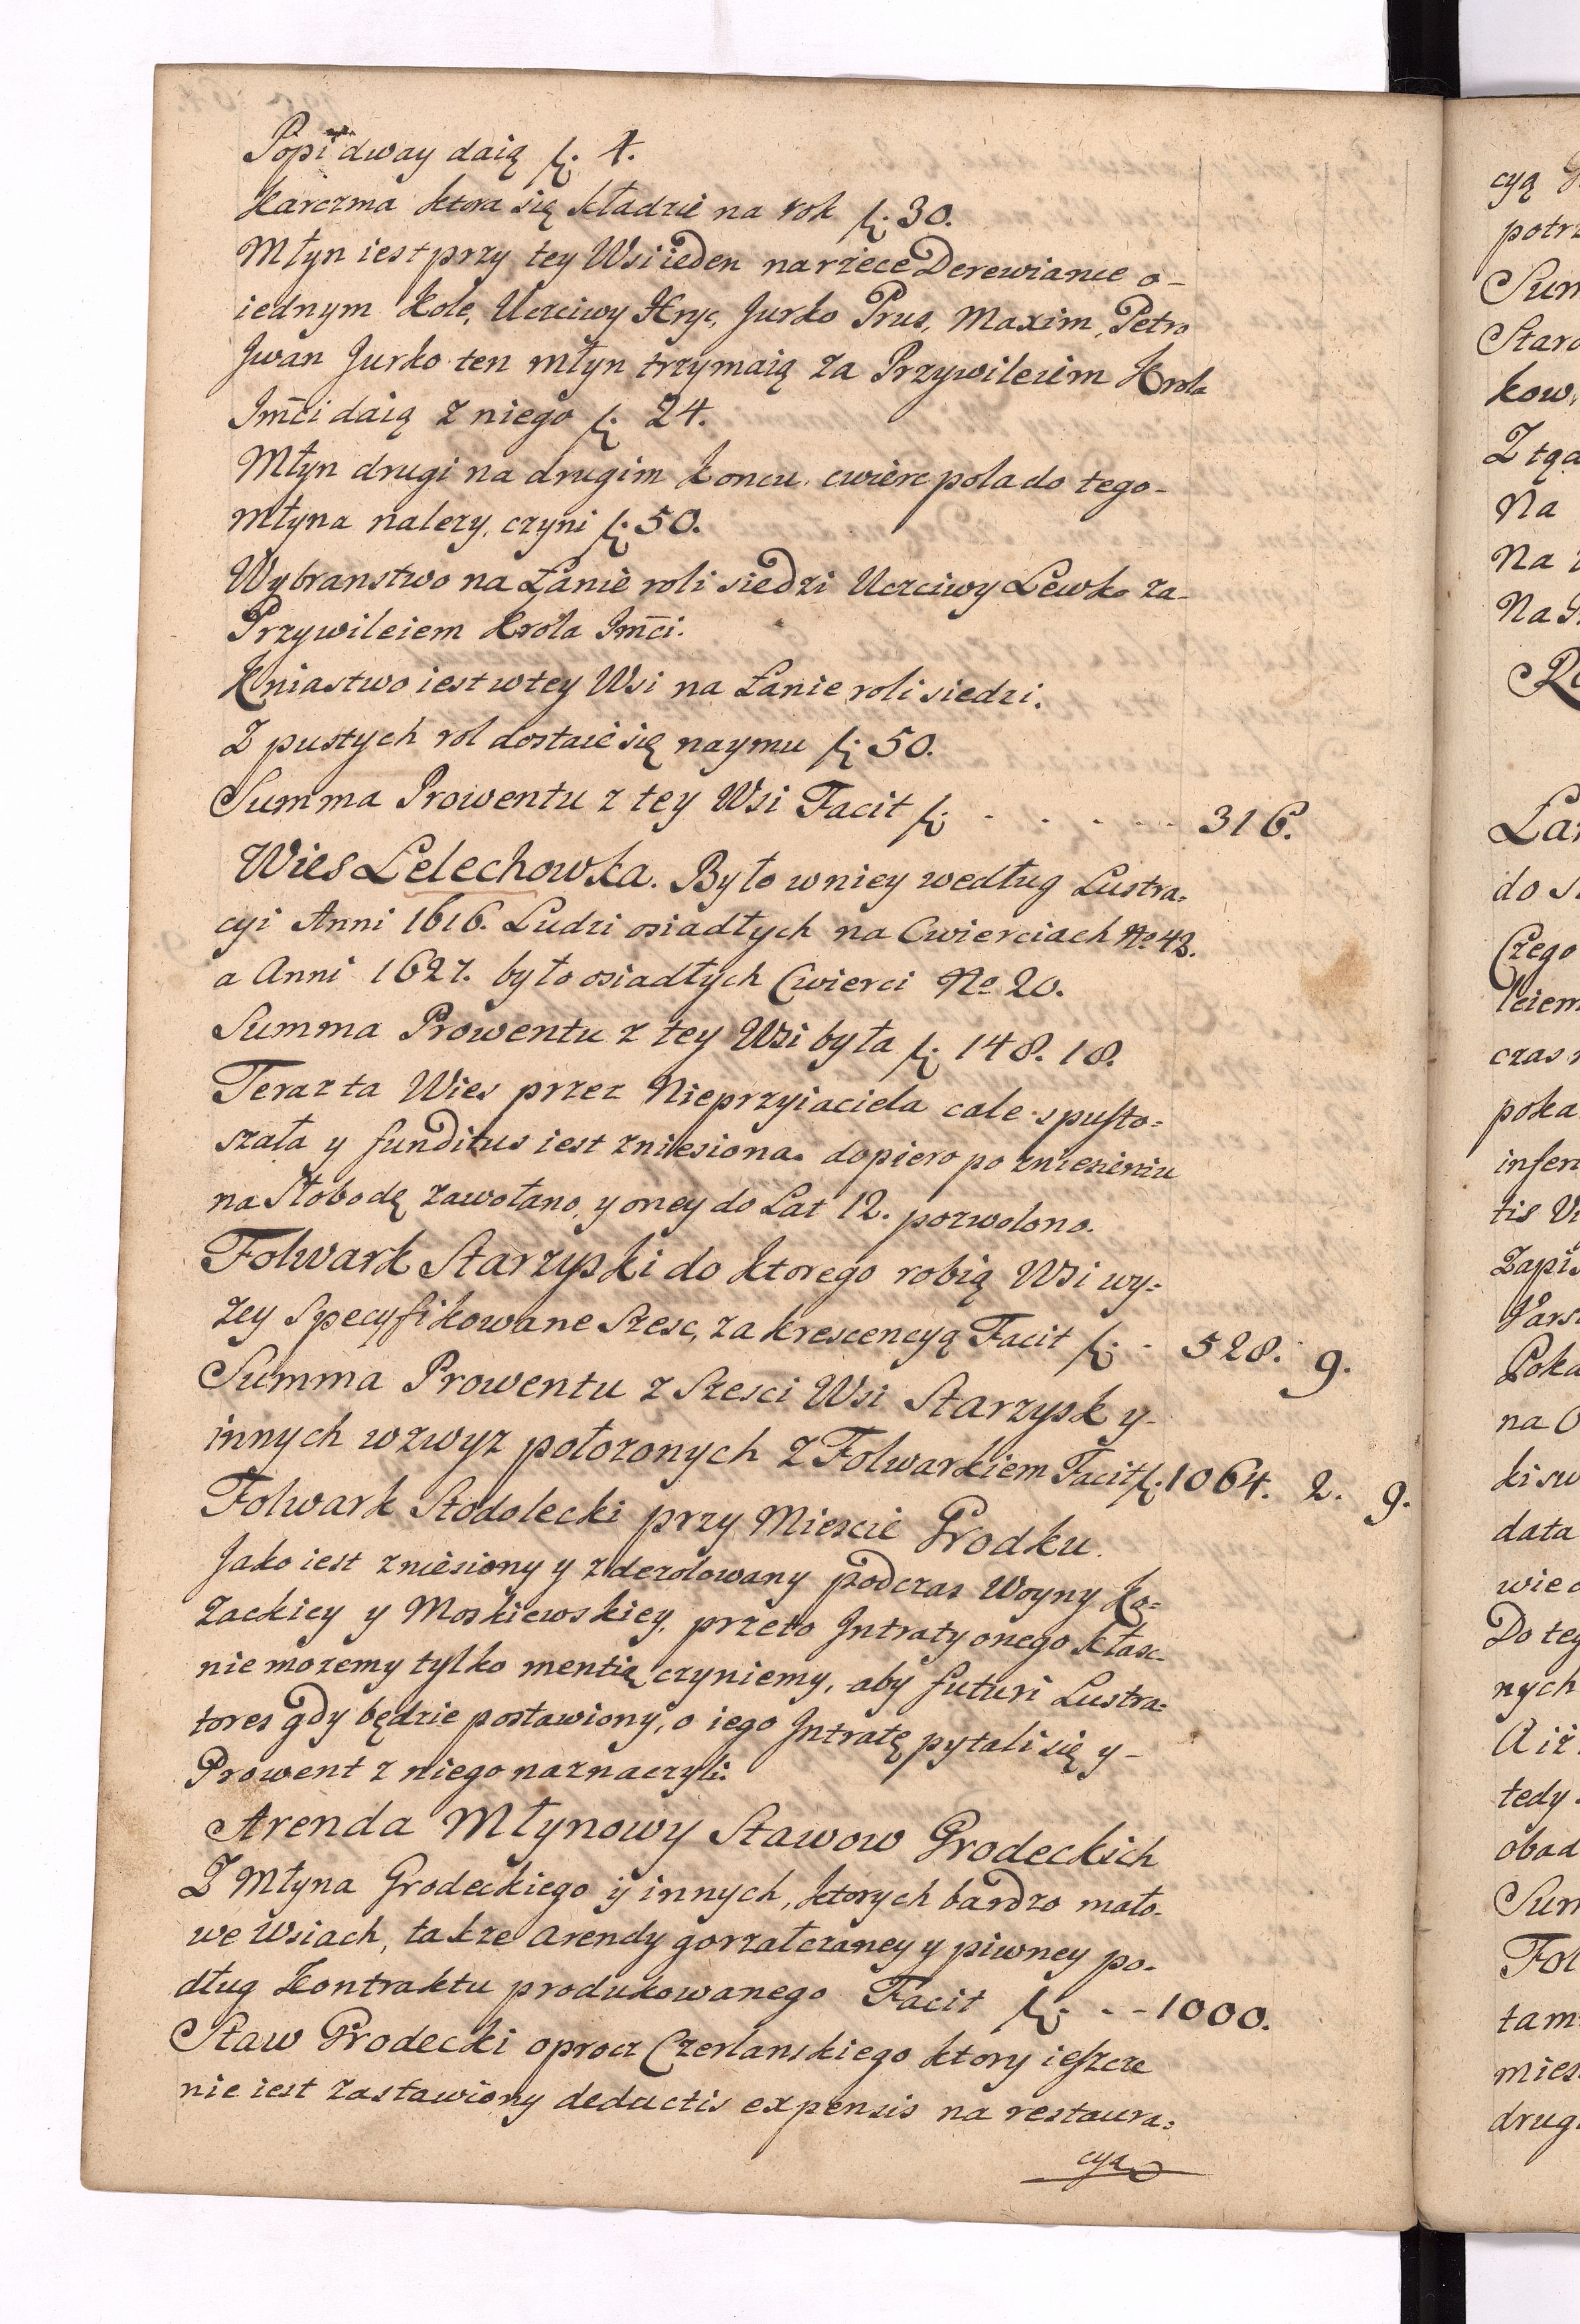 Popi dway daią fl. 4.
Karczma ktora się kładzie na rok fl. 30.
Młyn iest przy tey Wsi ieden na rzece Derewiance o-
iednym kole, Uczciwy Hryc, Jurko Prus, Maxim, Petro
Jwan Jurko ten młyn trzymaią za Przywileiem Krola
Jmći daią z niego fl. 24.
Młyn drugi na drugim koncu, cwierc pola do tego-
młyna nalezy, czyni fl. 50.
Wybranstwo na Łanie roli siedzi Uczciwy Lewko za-
Przywileiem Krola Jmći.
Kniastwo iest w tey Wsi na Łanie roli siedzi.
Z pustych rol dostaie się naymu fl. 50.
Summa Prowentu z tey Wsi Facit fl. - - - - - 316.
Wies Lelechowka. Było w niey według Lustra=
cyi Anni 1616. Ludzi osiadłych na Cwierciach No 42.
a Anni 1627. było osiadłych Cwierci No 20.
Summa Prowentu z tey Wsi była fl. 148. 18.
Teraz ta Wies przez Nieprzyiaciela cale spusto=
szała y funditus iest zniesiona. dopiero po zniesieniu
na Słobodę zawołano, y oney do Lat 12. pozwolono.
Folwark Starzyski do ktorego robią Wsi wy=
zey Specyfikowane Szesc, za krescencyą Facit fl. - 528. 9.
Summa Prowentu z Szesci Wsi Starzysk y-
innych wzwyz połozonych z Folwarkiem Facit fl. 1064. 2. 9.
Folwark Stodolecki przy Miescie Grodku.
Jako iest zniesiony y zdezolowany podczas Woyny Ko=
zackiey y Moskiewskiey, przeto Jntraty onego kłasc
nie mozemy tylko mentią czyniemy, aby futuri Lustra=
tores gdy będzie postawiony, o iego Jntratę pytali się y-
Prowent z niego naznaczyli.
Arenda Młynowy Stawow Grodeckich
Z Młyna Grodeckiego y innych, ktorych bardzo mało-
we Wsiach, takze arendy gorzałczaney y piwney po=
dług Kontraktu produkowanego Facit fl. - - 1000.
Staw Grodecki oprocz Czerlanskiego ktory ieszcze
nie iest zastawiony deductis expensis na restaura=
cyą